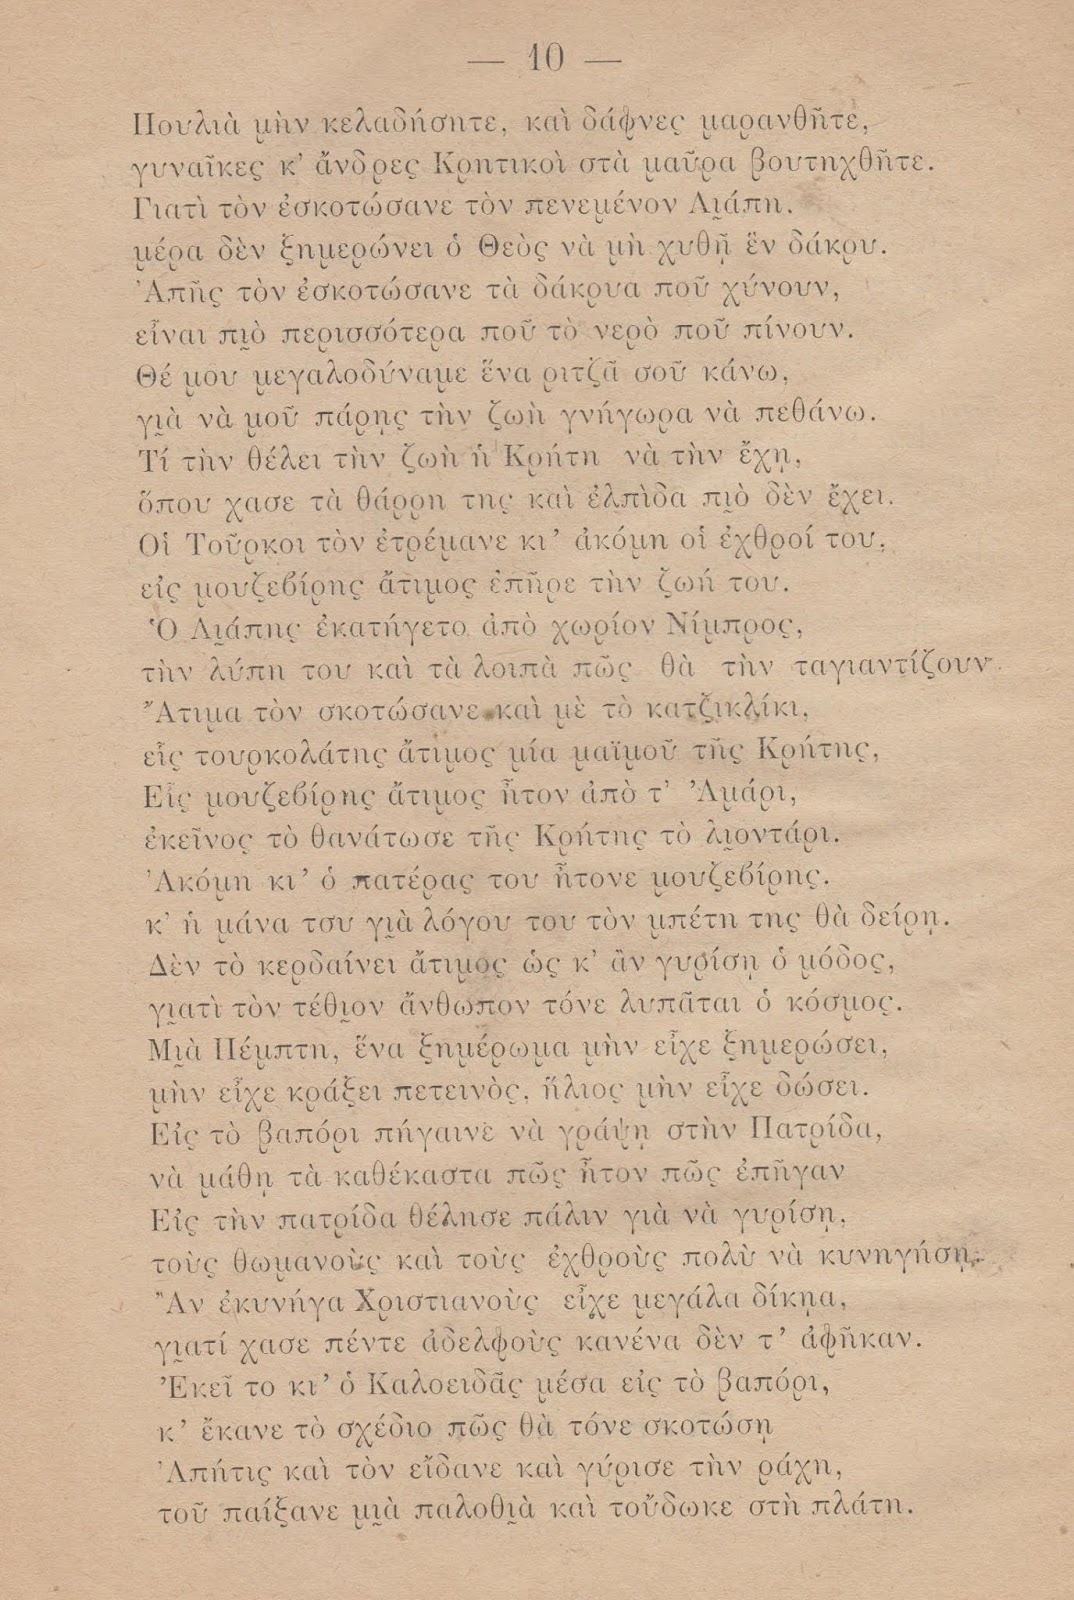 — 10 —
Πουλιὰ μὴν κελαδήσητε, καὶ δάφνες μαρανθῆτε,
γυναῖκες κ’ ἄνδρες Κρητικοὶ στὰ μαῦρα βουτηχθῆτε.
Γιατὶ τὸν ἐσκοτώσανε τὸν πενεμένον Λι̯άπη.
μέρα δὲν ξημερώνει ὁ Θεὸς νὰ μὴ χυθῇ ἓν δάκρυ.
Ἀπῆς τὸν ἐσκοτώσανε τὰ δάκρυα ποῦ χύνουν,
εἶναι πι̯ὸ περισσότερα ποῦ τὸ νερὸ ποῦ πίνουν.
Θέ μου μεγαλοδύναμε ἕνα ριτζᾶ σοῦ κάνω,
γι̯ὰ νὰ μοῦ πάρῃς τὴν ζωὴ γνήγωρα νὰ πεθάνω.
Τί τὴν θέλει τὴν ζωὴ ἡ Κρήτη νὰ τὴν ἔχῃ,
ὅπου χασε τὰ θάρρη της καὶ ἐλπὶδα πι̯ὸ δὲν ἔχει.
Οἱ Τοῦρκοι τὸν ἐτρέμανε κι’ ἀκόμη οἱ ἐχθροί του,
εἰς μουζεβίρης ἄτιμος ἐπῆρε τὴν ζωή του.
Ὁ Λι̯άπης ἐκατήγετο ἀπὸ χωρίον Νίμπρος,
τὴν λύπη του καὶ τὰ λοιπὰ πῶς θὰ τὴν ταγιαντίζουν.
Ἄτιμα τὸν σκοτώσανε καὶ μὲ τὸ κατζικλίκι,
εἷς τουρκολάτης ἄτιμος μία μαϊμοῦ τῆς Κρήτης,
Εἷς μουζεβίρης ἄτιμος ἦτον ἀπὸ τ’ Ἀμάρι,
ἐκεῖνος τὸ θανάτωσε τῆς Κρήτης τὸ λι̯οντάρι.
Ἀκόμη κι’ ὁ πατέρας του ἦτονε μουζεβίρης.
κ’ ἡ μάνα τσυ γι̯ὰ λόγου του τὸν μπέτη της θὰ δείρῃ.
Δὲν τὸ κερδαίνει ἄτιμος ὡς κ’ ἂν γυρίσῃ ὁ μόδος,
γι̯ατὶ τὸν τέθι̯ον ἄνθωπον τόνε λυπᾶται ὁ κόσμος.
Μι̯ὰ Πέμπτη, ἕνα ξημέρωμα μὴν εἶχε ξημερώσει,
μὴν εἶχε κράξει πετεινὸς, ἥλιος μὴν εἶχε δώσει.
Εἰς τὸ βαπόρι πήγαινε νὰ γράψῃ στὴν Πατρίδα,
νὰ μάθῃ τὰ καθέκαστα πῶς ἦτον πῶς ἐπῆγαν
Εἰς τὴν πατρίδα θέλησε πάλιν γιὰ νὰ γυρίσῃ,
τοὺς θωμανοὺς καὶ τοὺς ἐχθροὺς πολὺ νὰ κυνηγήσῃ.
Ἂν ἐκυνήγα Χριστιανοὺς εἶχε μεγάλα δίκῃα,
γι̯ατί χασε πέντε ἀδελφοὺς κανένα δὲν τ’ ἀφῆκαν.
Ἐκεῖ το κι’ ὁ Καλοειδᾶς μέσα εἰς τὸ βαπόρι,
κ’ ἔκανε τὸ σχέδιο πῶς θὰ τόνε σκοτώσῃ
Ἀπήτις καὶ τὸν εἴδανε καὶ γύρισε τὴν ράχη,
τοῦ παίξανε μι̯ὰ παλοθι̯ὰ καὶ τοὔδωκε στὴ πλάτη.